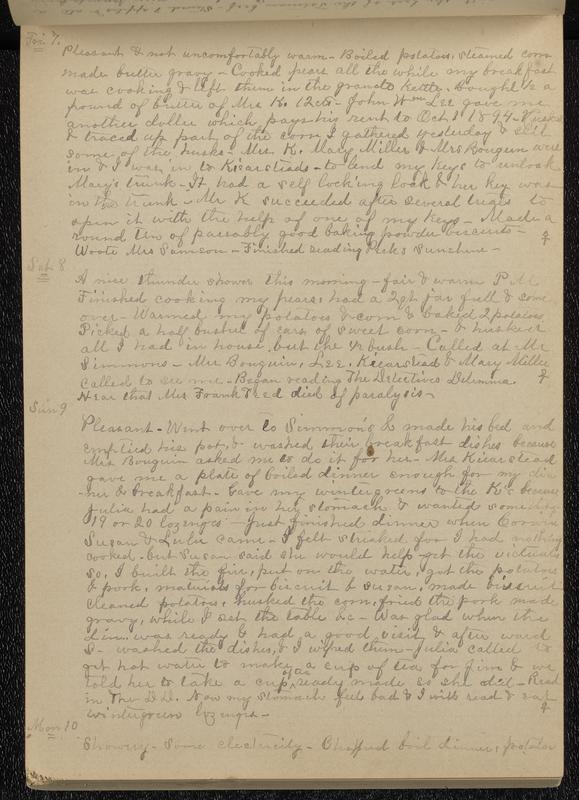 Fri 7.
Pleasant & not uncomfortably warm - Boiled potatoes, steamed corn
made butter gravy - Cooked pears all the while my breakfast
was cooking & left them in the granate kettle. bought ½ a
pound of butter of Mrs K. 12cts - John Wm Lee gave me
another dollar which pays his rent to Oct 1 1894. Husked
& traced up part of the corn I gathered yesterday & slit
some of the husks - Mr. K. Mary Miller & Mrs Bouguin were
in & I was in to Kiearsteads - to lend my keys to unlock
Mary's trunk - It had a self locking lock & her key was
in the trunk - Mr K succeeded after several trials to
open it with the help of one of my keys - Made a
round tin of passably good baking powder biscuits -
Wrote Mrs Samson - Finished reading Pecks Sunshine -
Sat 8
A nice thunder shower this morning - fair & warm P.M.
Finished cooking my pears, had a 2 qt jar full & some
over - Warmed my potatoes & corn & baked 2 potatoes
Picked a half bushel of ears of sweet corn - & husked
all I had in house, but the ½ bush - Called at Mr
Simmons - Mrs Bouguin, Lee, Kiearstead & Mary Miller
called to see me - Began reading The Detectives Dilemma.
Hear that Mrs Frank Teed died of paralysis -
Sun 9
Pleasant - Went over to Simmons & made his bed and
emptied his pot, & washed their breakfast dishes because
Mrs Bouguin asked me to do it for her - Mrs Kiearstead
gave me a plate of boiled dinner enough for my din
-ner & breakfast - Gave my wintergreens to the K's because
Julia had a pain in her stomach & wanted something
19 or 20 lozenges - Just finished dinner when Corwin
Susan & Lulu came - I felt streaked for I had nothing
cooked - but Susan said she would help get the victuals
so, I built the fire, put on the water, got the potatoes
& pork, materials for biscuit & Susan, made biscuit
cleaned potatoes, husked the corn, fried the pork made
gravy, while I set the table &c - Was glad when the
din. was ready & had a good visit & after ward
S - washed the dishes, & I wiped them - Julia called to
get hot water to make a cup of tea for Jim & we
told her to take a cup of tea ready made so she did - Read
in The D.D. Now my stomach feels bad & I will read & eat
wintergreen lozenges -
Mon 10
Showery - Some electricity - Chopped boil dinner, potatoes